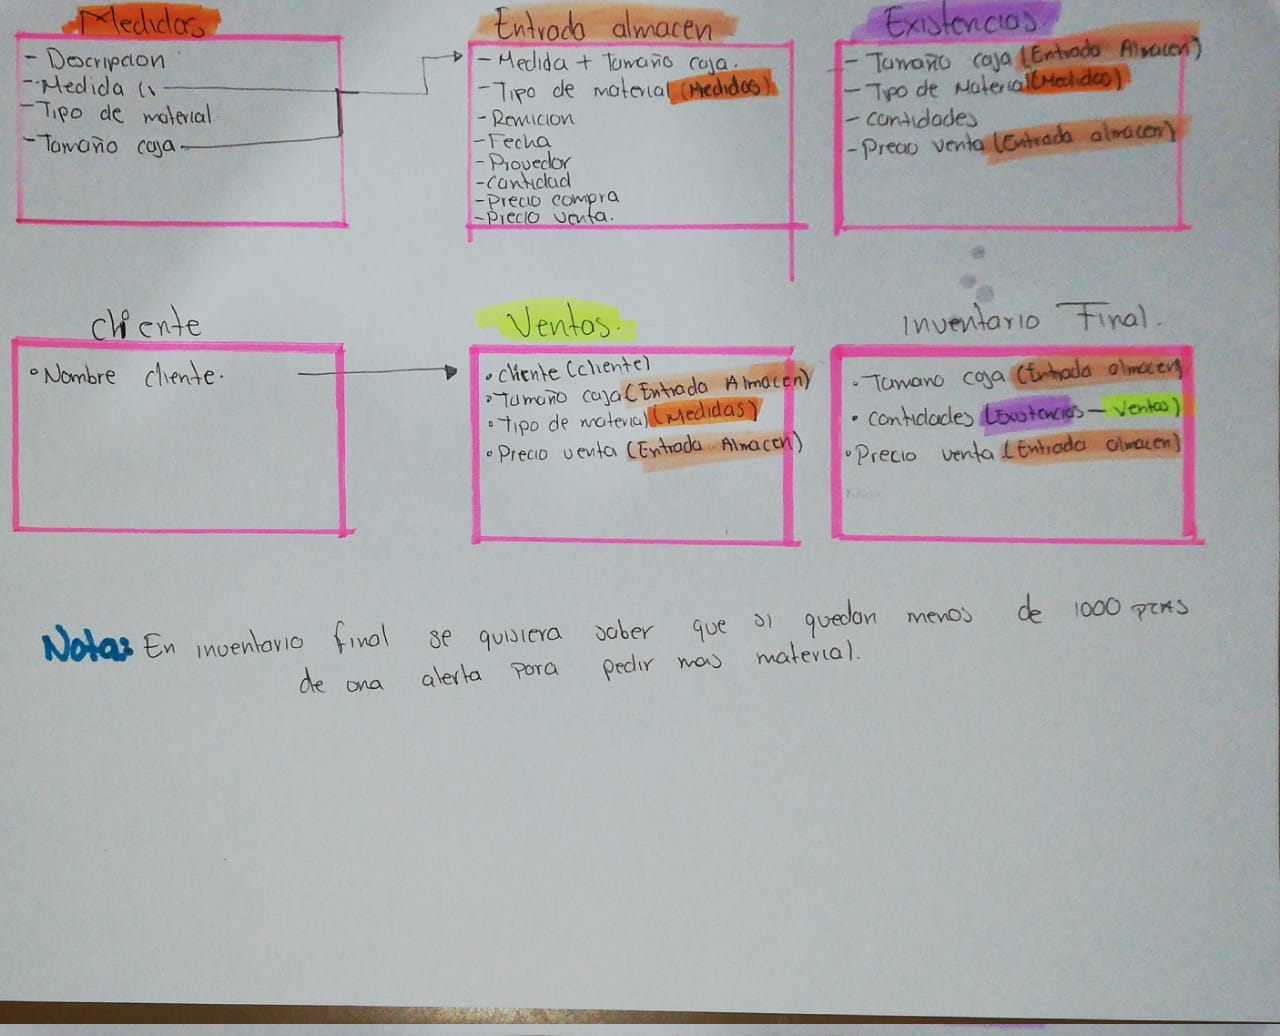 Medidas
- Descripcion
- Medida
- Tipo de material
- Tamaño caja
Entrada almacen
- Medida + Tamaño caja.
- Tipo de material (Medidas)
- Remicion
- Fecha
- Provedor
- Cantidad
- Precio compra
- Precio venta.
Existencias.
- Tamaño caja (Entrada Almacen)
- Tipo de Material (Medidas)
- cantidades
- Precio venta (Entrada almacen)
cliente
° Nombre cliente.
Ventas.
• cliente (cliente)
• Tamaño caja (Entrada Almacen)
• Tipo de material (Medidas)
• Precio venta (Entrada Almacen)
Inventario Final.
• Tamano caja (Entrada almacen)
• cantidades (Existencias - Ventas)
• Precio venta (Entrada almacen)
Nota: En inventario final se quisiera saber que si quedan menos de 1000 pzas
de una alerta para pedir mas material.